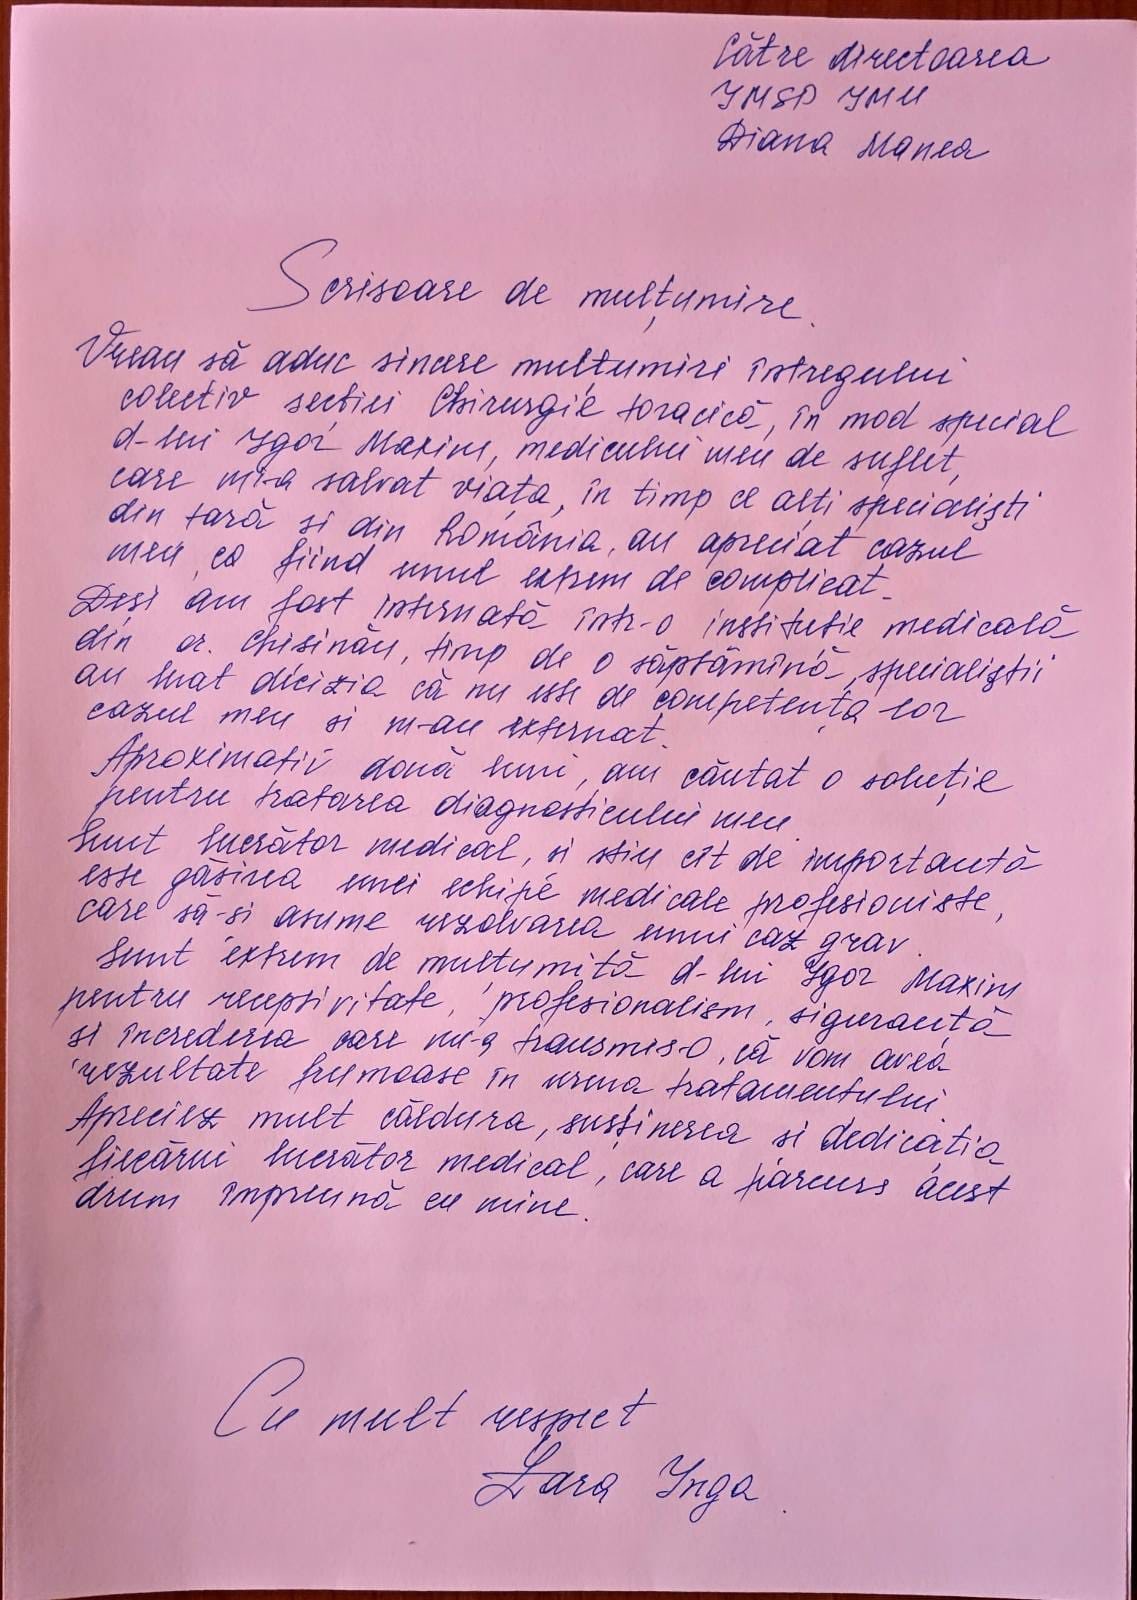 Către directoarea
IMSP IMU
Diana Manea
Scrisoare de mulțumire.
Vreau să aduc sincere mulțumiri întregului
colectiv secției Chirurgie toracică, în mod special
d-lui Igor Maxim, medicului meu de suflet,
care mi-a salvat viața, în timp ce alți specialiști
din țară si din România, au apreciat cazul
meu, ca fiind unul extrem de complicat.
Deși am fost internată într-o instituție medicală
din or. Chisinău, timp de o săptămînă, specialiștii
au luat decizia că nu este de competența lor
cazul meu si m-au externat.
Aproximativ două luni, am căutat o soluție
pentru tratarea diagnosticului meu.
Sunt lucrător medical, si stiu cît de importantă
este găsirea unei echipe medicale profesioniste,
care să-si asume rezolvarea unui caz grav.
Sunt extrem de multumită d-lui Igor Maxim
pentru receptivitate, profesionalism, sigurantă
si încrederea care mi-a transmis-o, că vom avea
rezultate frumoase în urma tratamentului.
Apreciez mult căldura, susținerea si dedicația
fiecărui lucrător medical, care a parcurs acest
drum împreună cu mine.
Cu mult respect
Lara Inga